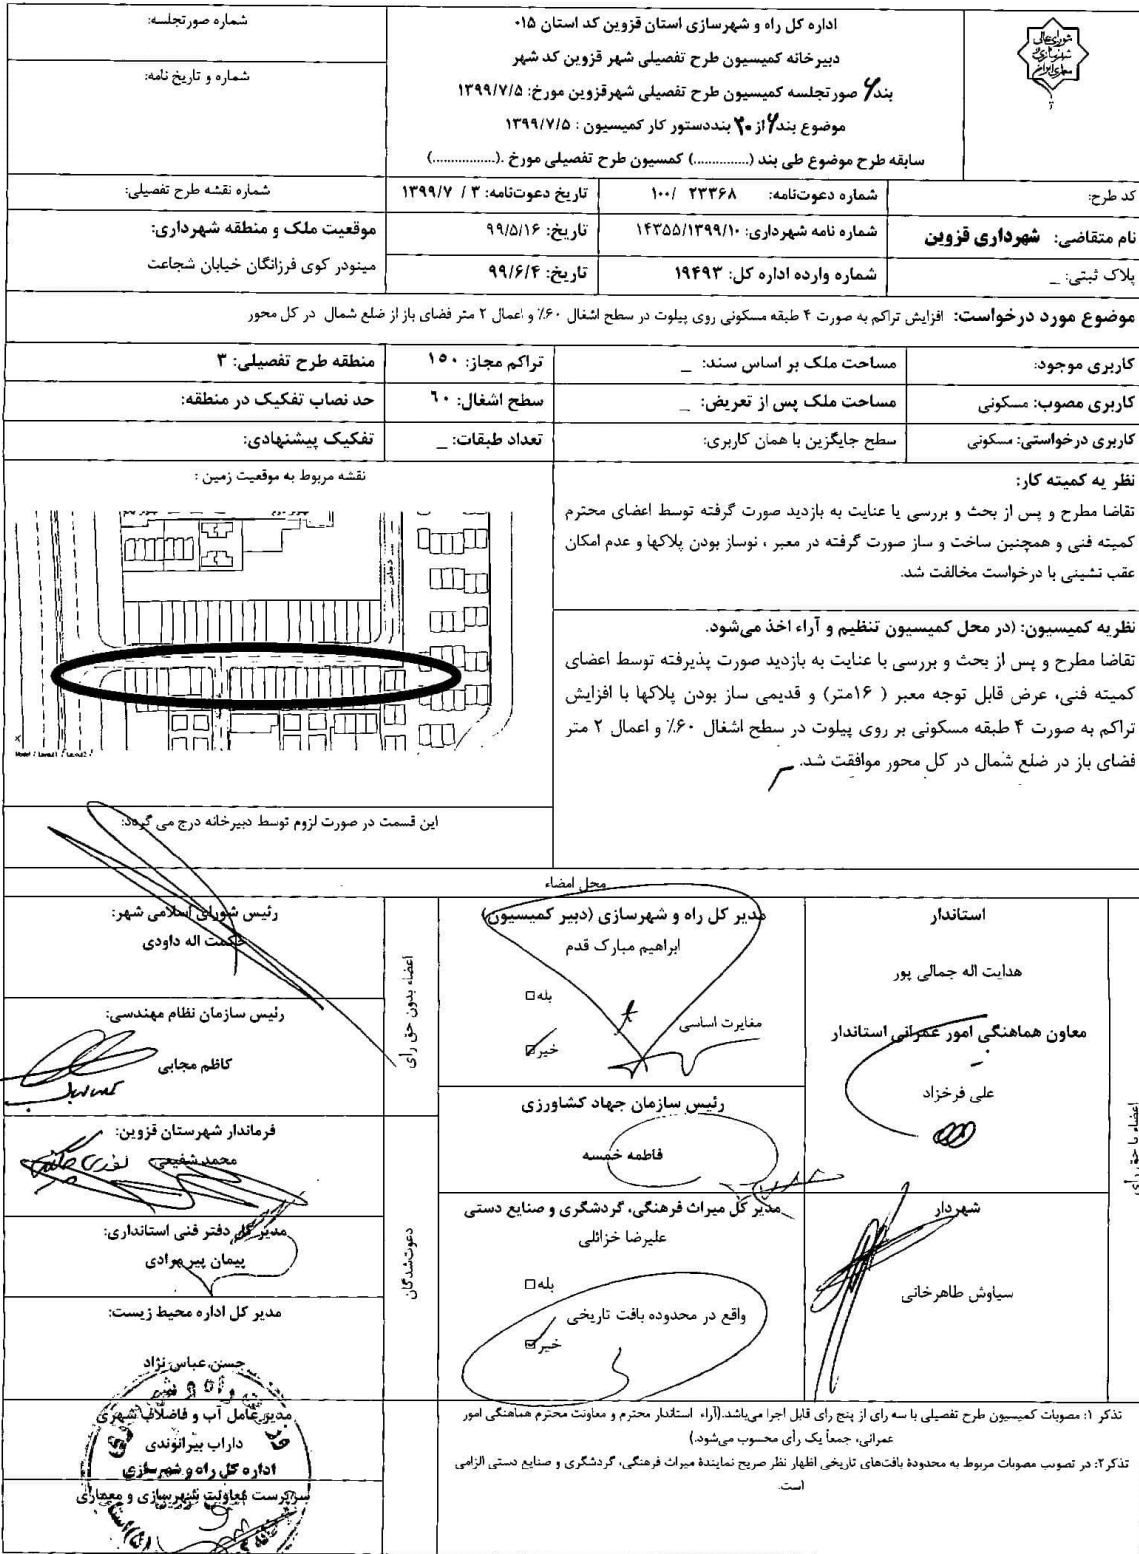 شورای عالی
شهرسازی و
معماری ایران
اداره کل راه و شهرسازی استان قزوین کد استان ۰۱۵
دبیرخانه کمیسیون طرح تفصیلی شهر قزوین کد شهر
بند ۶ صورتجلسه کمیسیون طرح تفصیلی شهرقزوین مورخ: ۱۳۹۹/۷/۵
موضوع بند ۶ از ۲۰ بنددستور کار کمیسیون : ۱۳۹۹/۷/۵
سابقه طرح موضوع طی بند (...............) کمسیون طرح تفصیلی مورخ .(.................)
شماره صورتجلسه:
شماره و تاریخ نامه:
کد طرح:
شماره دعوت‌نامه: ۲۳۳۶۸ /۱۰۰
تاریخ دعوت‌نامه: ۳ / ۱۳۹۹/۷
شماره نقشه طرح تفصیلی:
نام متقاضی: شهرداری قزوین
شماره نامه شهرداری: ۱۴۳۵۵/۱۳۹۹/۱۰
تاریخ: ۹۹/۵/۱۶
موقعیت ملک و منطقه شهرداری:
مینودر کوی فرزانگان خیابان شجاعت
پلاک ثبتی: _
شماره وارده اداره کل: ۱۹۴۹۳
تاریخ: ۹۹/۶/۴
موضوع مورد درخواست: افزایش تراکم به صورت ۴ طبقه مسکونی روی پیلوت در سطح اشغال ۶۰٪ و اعمال ۲ متر فضای باز از ضلع شمال در کل محور
کاربری موجود:
مساحت ملک بر اساس سند: _
تراکم مجاز: ۱۵۰
منطقه طرح تفصیلی: ۳
کاربری مصوب: مسکونی
مساحت ملک پس از تعریض: _
سطح اشغال: ۶۰
حد نصاب تفکیک در منطقه:
کاربری درخواستی: مسکونی
سطح جایگزین با همان کاربری:
تعداد طبقات: _
تفکیک پیشنهادی:
نظر یه کمیته کار:
تقاضا مطرح و پس از بحث و بررسی یا عنایت به بازدید صورت گرفته توسط اعضای محترم
کمیته فنی و همچنین ساخت و ساز صورت گرفته در معبر ، نوساز بودن پلاکها و عدم امکان
عقب نشینی با درخواست مخالفت شد.
نظریه کمیسیون: (در محل کمیسیون تنظیم و آراء اخذ می‌شود.
تقاضا مطرح و پس از بحث و بررسی با عنایت به بازدید صورت پذیرفته توسط اعضای
کمیته فنی، عرض قابل توجه معبر ( ۱۶متر) و قدیمی ساز بودن پلاکها با افزایش
تراکم به صورت ۴ طبقه مسکونی بر روی پیلوت در سطح اشغال ۶۰٪ و اعمال ۲ متر
فضای باز در ضلع شمال در کل محور موافقت شد.
نقشه مربوط به موقعیت زمین :
این قسمت در صورت لزوم توسط دبیرخانه درج می گردد:
محل امضاء
اعضاء با حق رأی
استاندار
هدایت اله جمالی پور
معاون هماهنگی امور عمرانی استاندار
علی فرخزاد
شهردار
سیاوش طاهرخانی
مدیر کل راه و شهرسازی (دبیر کمیسیون)
ابراهیم مبارک قدم
بله
مغایرت اساسی
خیر
رئیس سازمان جهاد کشاورزی
فاطمه خمسه
مدیر کل میراث فرهنگی، گردشگری و صنایع دستی
علیرضا خزائلی
بله
واقع در محدوده بافت تاریخی
خیر
اعضاء بدون حق رأی
دعوت‌شدگان
رئیس شورای اسلامی شهر:
حکمت اله داودی
رئیس سازمان نظام مهندسی:
کاظم مجابی
فرماندار شهرستان قزوین:
محمد شفیعی
مدیر کل دفتر فنی استانداری:
پیمان پیر مرادی
مدیر کل اداره محیط زیست:
حسن عباس نژاد
مدیر عامل آب و فاضلاب شهری
داراب بیرانوندی
اداره کل راه و شهرسازی
سرپرست معاونت شهرسازی و معماری
تذکر ۱: مصوبات کمیسیون طرح تفصیلی با سه رای از پنج رای قابل اجرا می‌باشد.(آراء استاندار محترم و معاونت محترم هماهنگی امور
عمرانی، جمعاً یک رأی محسوب می‌شود.)
تذکر۲: در تصویب مصوبات مربوط به محدودهٔ بافت‌های تاریخی اظهار نظر صریح نمایندهٔ میراث فرهنگی، گردشگری و صنایع دستی الزامی
است.